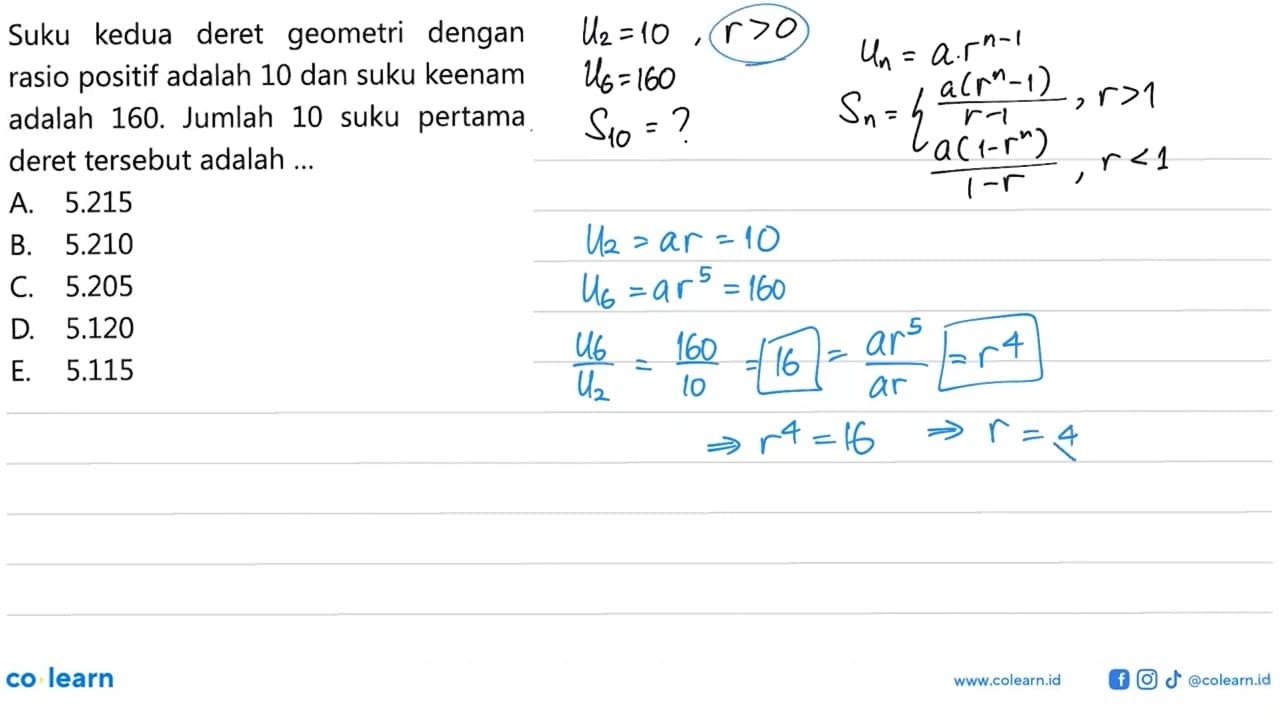 Suku kedua deret geometri dengan
rasio positif adalah 10 dan suku keenam
adalah 160. Jumlah 10 suku pertama
deret tersebut adalah ...
A. 5.215
B. 5.210
C. 5.205
D. 5.120
E. 5.115
U₂ = 10 , r > 0
U₆ = 160
S₁₀ = ?
Uₙ = a.rⁿ⁻¹
Sₙ = { a(rⁿ-1) / r-1 , r > 1
a(1-rⁿ) / 1-r , r < 1
U₂ = ar = 10
U₆ = ar⁵ = 160
U₆ / U₂ = 160 / 10 = 16 = ar⁵ / ar = r⁴
⇒ r⁴ = 16 ⇒ r = 4
co learn
www.colearn.id @colearn.id